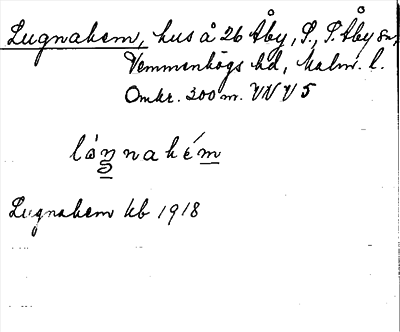 Lugnahem, hus å 26 Åby, S., S. Åby sn,
Vemmenhögs hd, Malm. l.
Omkr. 300 m. VNV 5
lòŋnahém
Lugnahem kb 1918